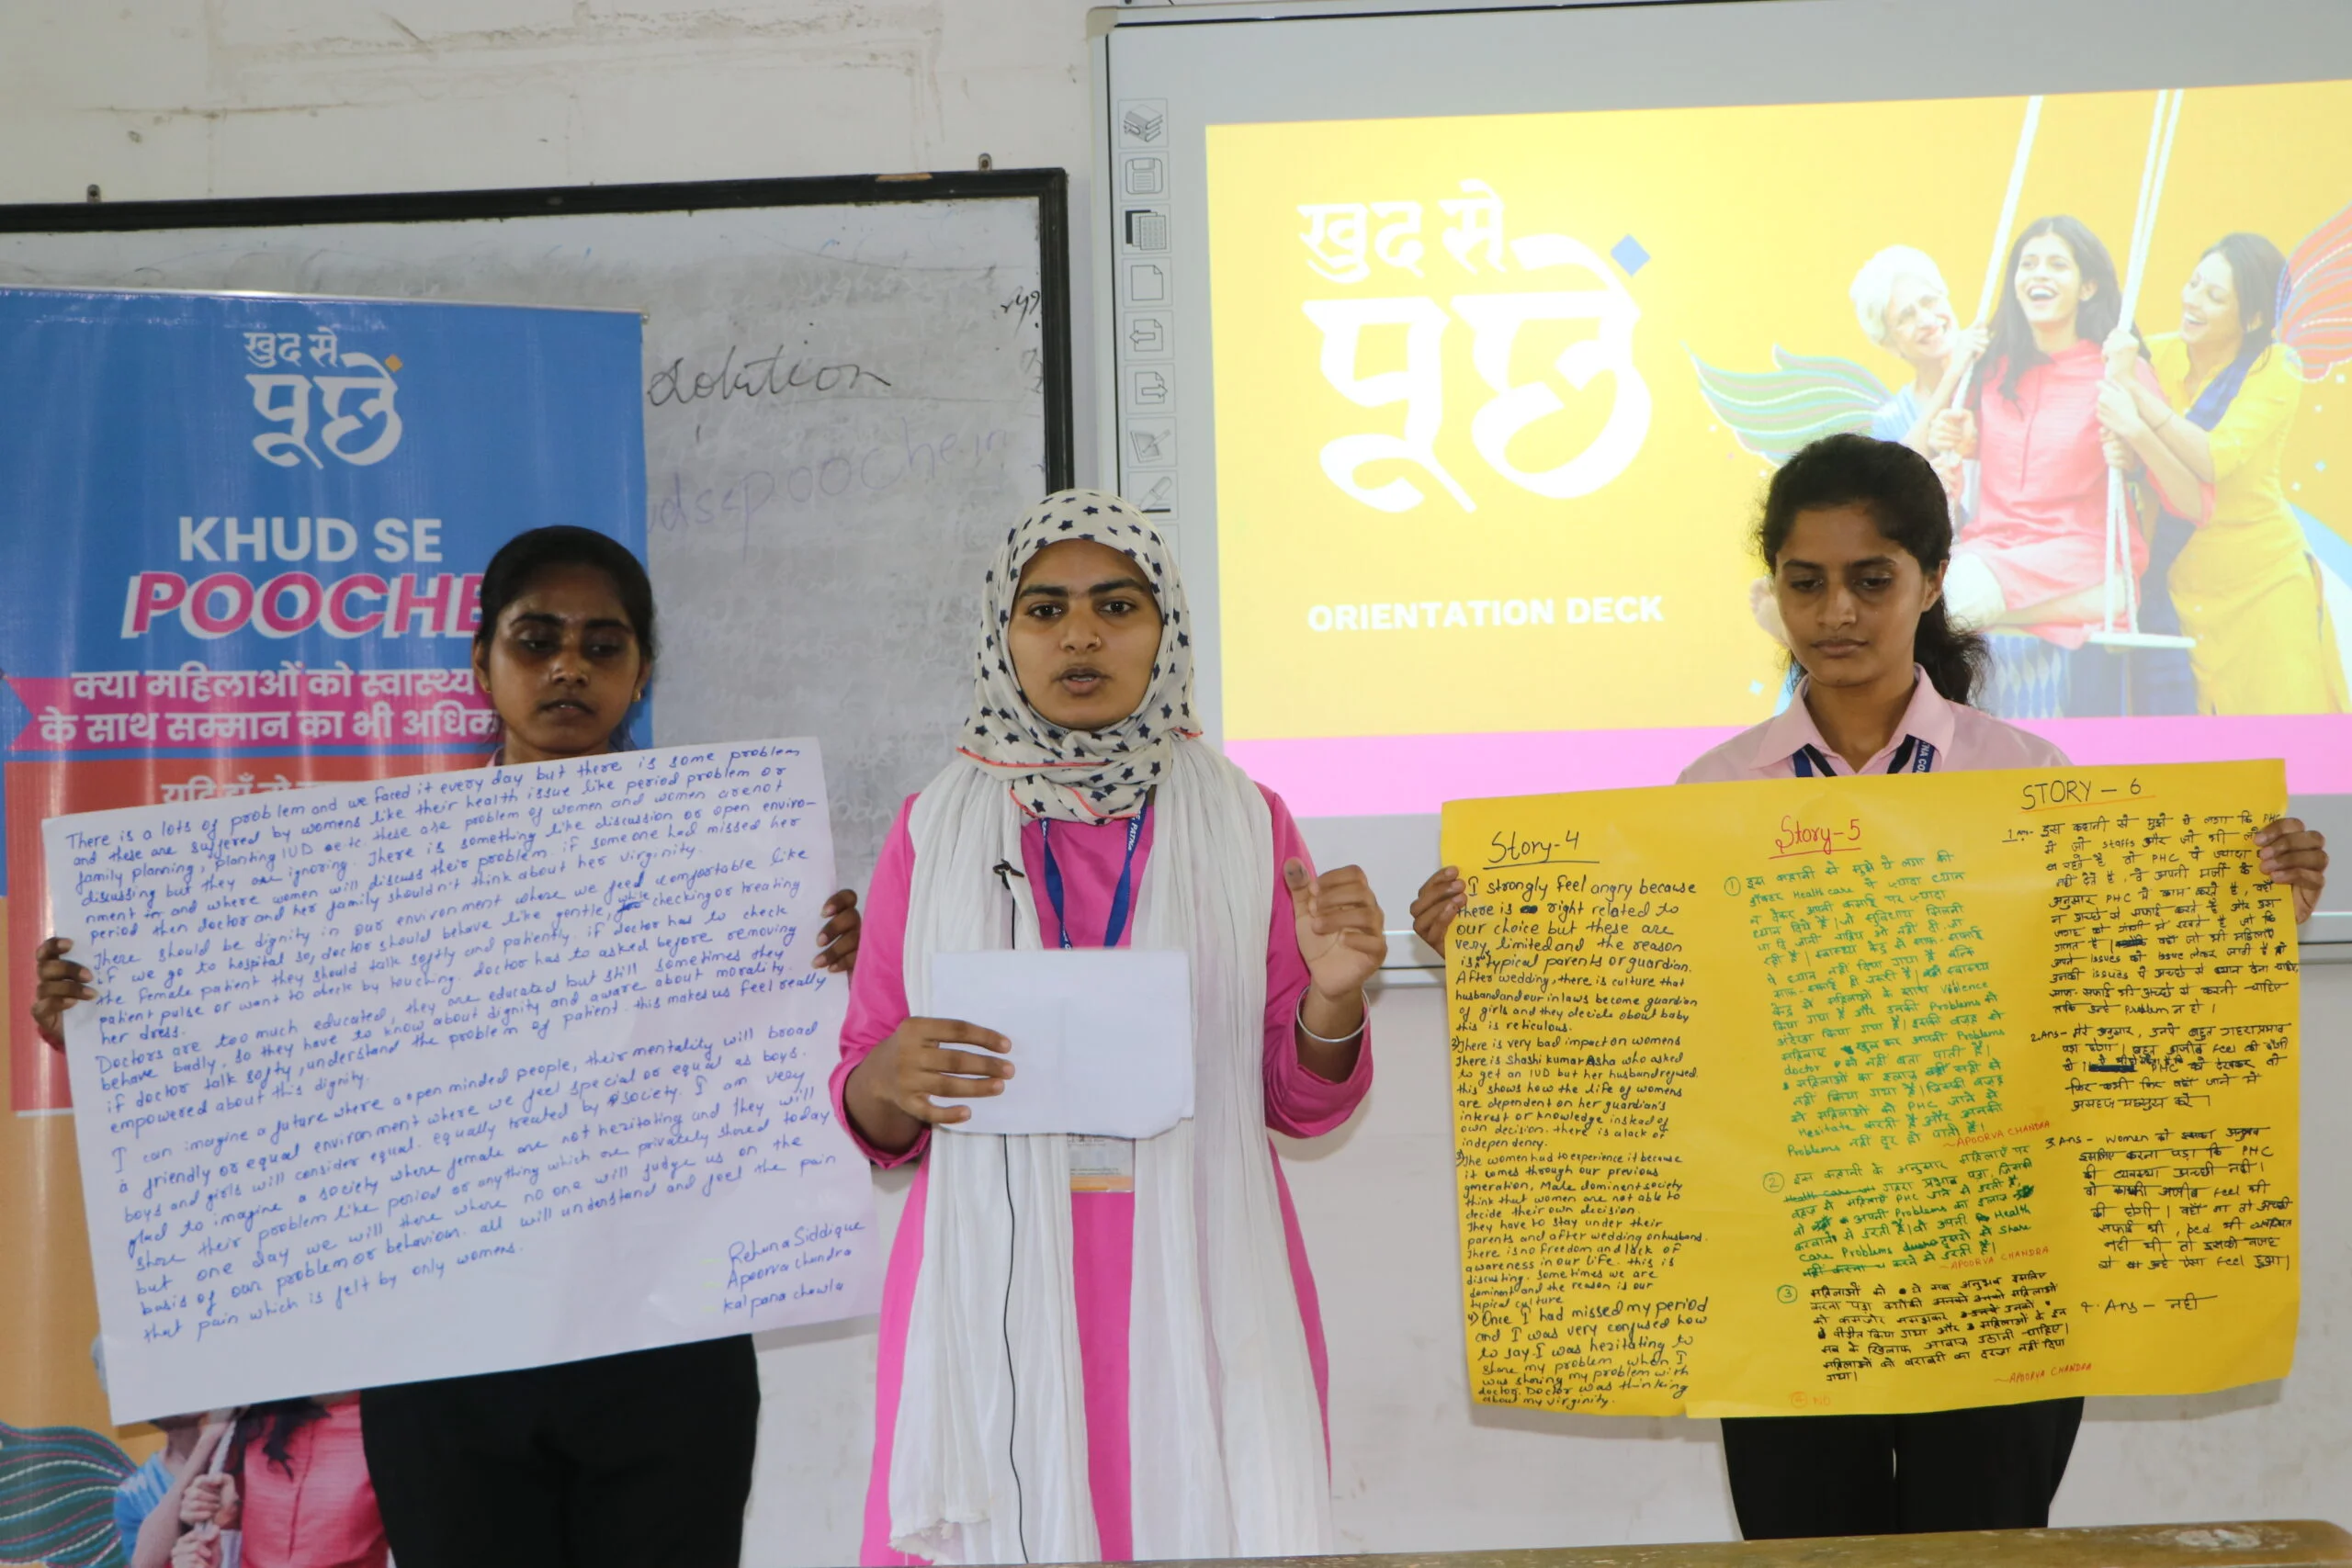 खुद से
पूछें
KHUD SE
POOCHE
क्या महिलाओं को स्वास्थ्य
के साथ सम्मान का भी अधिक
solution
udsepoochein
खुद से
पूछें
ORIENTATION DECK
There is a lots of problem and we faced it every day but there is some problem
and these are suffered by womens like their health issue like period problem or
family planning, planting IUD ae.tc. these are problem of women and women arenot
discussing but they are ignoring. There is something like discussion or open enviro-
nment in and where women will discuss their problem if someone had missed her
period then doctor and her family shouldn't think about her virginity.
There should be dignity in our environment where we feel comfortable like
if we go to hospital so, doctor should behave like gentle, while checking or treating
the female patient they should talk softly and patiently. if doctor has to check
patient pulse or want to check by touching doctor has to asked before removing
her dress.
Doctors are too much educated, they are educated but still sometimes they
behave badly. So they have to know about dignity and aware about morality.
if doctor talk softy, understand the problem of patient. this makes us feel really
empowered about this dignity.
I can imagine a future where a open minded people, their mentality will broad
a friendly or equal environment where we feel special or equal as boys.
boys and girls will consider equal. equally treated by society. I am very
glad to imagine a society where female are not hezitating and they will
share their problem like period or anything which are privately shared today
but one day we will there where no one will judge us on the
basis of our problem or behaviour. all will understand and feel the pain
that pain which is felt by only womens.
Rehana Siddique
Apoorva chandra
kalpana chawla
Story-4
I strongly feel angry because
there is right related to
our choice but these are
very limited and the reason
is typical parents or guardian.
After wedding, there is culture that
husband and our in laws become guardian
of girls and they decide about baby
this is reticulous.
2) There is very bad impact on womens
There is Shashi kumar Asha who asked
to get an IUD but her husband refused.
this shows how the life of womens
are dependent on her guardian's
interest or knowledge instead of
own decision. there is a lack of
independency.
3) The women had to experience it because
it comes through our previous
gmeration, Male dominent society
think that women are not able to
decide their own decision.
They have to stay under their
parents and after wedding on husband.
There is no freedom and lack of
awareness in our life. this is
discusting. Sometimes we are
dominent and the reason is our
typical culture
4) Once I had missed my period
and I was very confused how
to say. I was hezitating to
share my problem, when I
was sharing my problem with
doctor. Doctor was thinking
about my virginity.
Story-5
① इस कहानी से मुझे ये लगा की
डॉक्टर Health care पे ज्यादा ध्यान
न देकर अपनी कमाई पर ज्यादा
ध्यान दिये है।
पे ध्यान नहीं दिया गया है
केंद्र में महिलाओं के साथ Violence
किया गया है और उनकी Problems को
महिलाए खुल कर अपनी Problems
doctor को नहीं बता पाती है।
महिलाओं का इलाज सही से
नहीं किया गया है। जिसकी वजह
से महिलाओं को PHC जाने से
Hesitate करती है और उनकी
Problems नहीं दूर हो पाती है।
~APOORVA CHANDRA
② इस कहानी के अनुसार महिलाए पर
गहरा प्रभाव पड़ा, जिसकी
वजह से महिलाए PHC जाने से डरती है,
अपनी Problems का इलाज
करवाने से डरती है। वो अपनी Health
Care Problems दूसरों से Share
करने से डरती है।
~APOORVA CHANDRA
③ महिलाओं को ये सब अनुभव इसलिए
करना पड़ा क्योंकी
को कमजोर समझकर
पीड़ित किया गया और महिलाओं के इन
सब के खिलाफ आवाज उठानी चाहिए।
महिलाओं को बराबरी का दरजा नहीं दिया
गया।
~APOORVA CHANDRA
④ NO
STORY - 6
1 Ans- इस कहानी से मुझे ये लगा कि PHC
में जो staffs और जो भी
PHC पे ज्यादा
नहीं देते है, वे अपनी मर्जी के
अनुसार PHC में काम करते है, वहाँ
न अच्छे से सफाई करते है और उस
जगह को गंदगी में रखते है जो कि
गलत है। वहाँ जो भी महिलाए
अपने issues को लेकर जाती है
उनकी issues पे अच्छे से ध्यान देना चाहिए,
साफ-सफाई भी अच्छे से करनी चाहिए
ताकि उन्हें Problem न हो।
2. Ans- मेरे अनुसार, उनपे बहुत गहरा प्रभाव
पड़ा होगा। बहुत अजीब feel की होगी
PHC को देखकर वो
फिर कभी फिर वहाँ जाने में
असहज महसूस करें।
3 Ans- Women को अनुभव
इसलिए करना पड़ा कि PHC
की व्यवस्था अच्छी नहीं।
वो काफी अजीब feel की
की होगी। वहाँ ना तो अच्छी
सफाई थी, bed भी
नहीं थी तो इसकी वजह
से उन्हें ऐसा feel हुआ।
4. Ans- नहीं